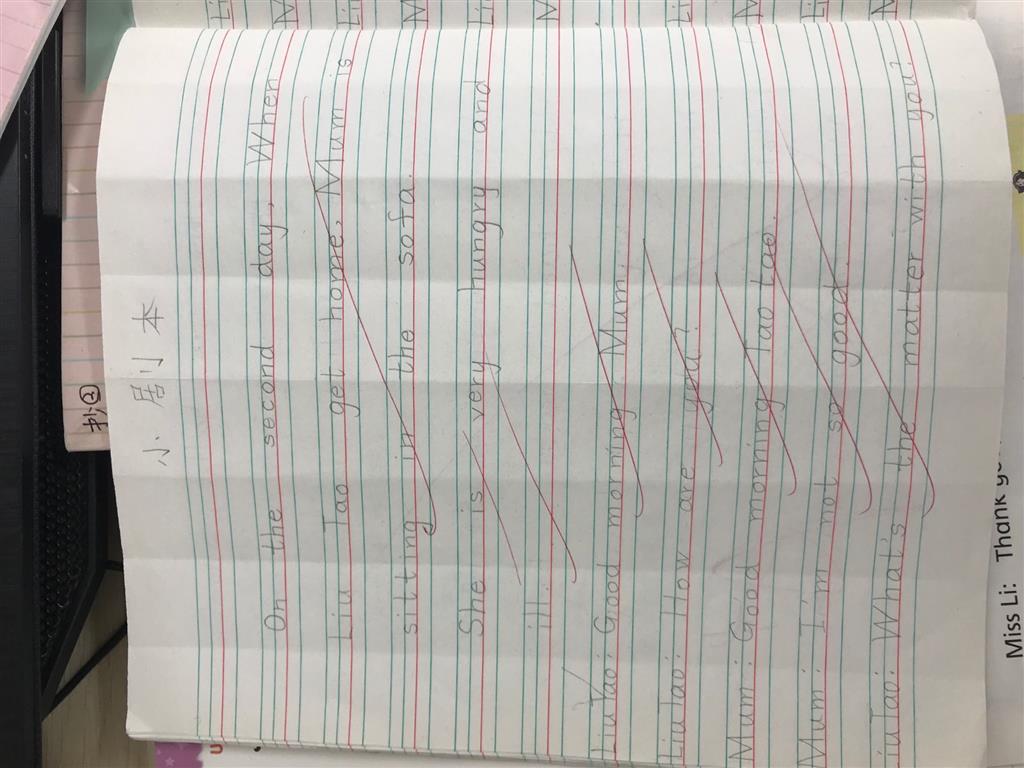 小剧本
On the second day, When
Liu Tao get home, Mum is
sitting in the sofa.
She is very hungry and
ill.
Liu Tao: Good morning Mum.
Liu Tao: How are you?
Mum: Good morning Tao tao.
Mum: I'm not so good.
Liu Tao: What's the matter with you?
抄②
Miss Li: Thank